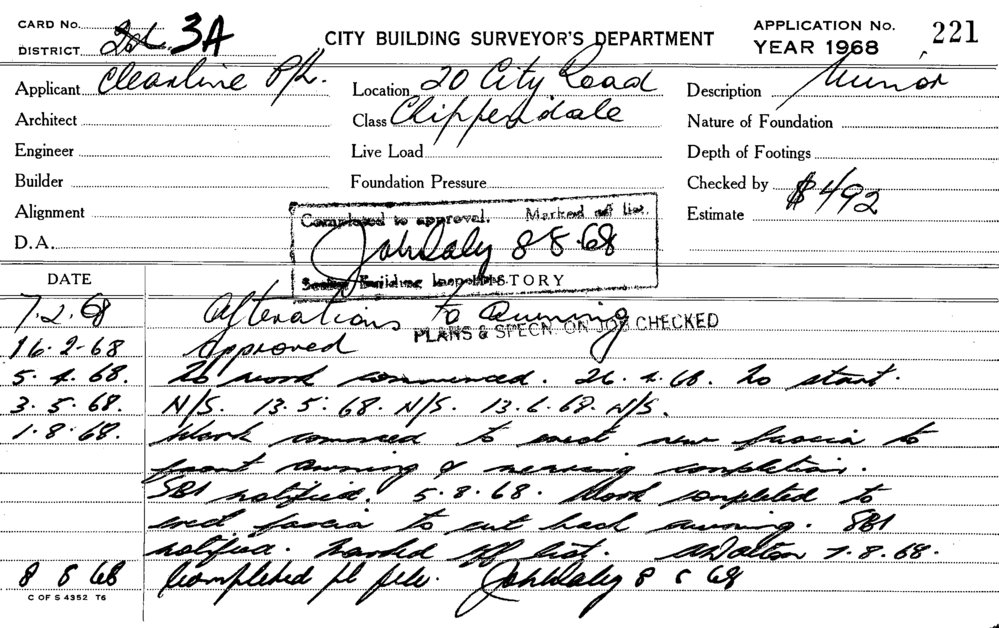 CARD No. 2nd. 3A
DISTRICT
CITY BUILDING SURVEYOR'S DEPARTMENT
APPLICATION No. 221
YEAR 1968
Applicant Clearline P/L.
Location 20 City Road
Description Minor
Architect
Class Chippendale
Nature of Foundation
Engineer
Live Load
Depth of Footings
Builder
Foundation Pressure
Checked by
Alignment
Estimate $492
D.A.
Completed to approval. Marked off list.
John Daly 8 8.68
Senior Building Inspector
HISTORY
DATE
7.2.68 Alterations to Awning
PLANS & SPECN. ON JOB CHECKED
16-2-68 Approved
5.4.68. No work commenced. 26.4.68. No start.
3.5.68. N/S. 13.5.68. N/S. 13.6.68. N/S.
1.8.68. Work commced to erect new fascia to
front awning & nearing completion.
SBI notified. 5.8.68. Work completed to
erect fascia to cut back awning. SBI
notified. Marked off list. 7.8.68.
8 8 68 Completed pl file. John Daly 8 8 68
C OF S 4352 T6